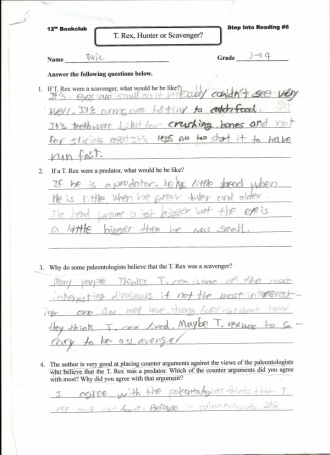 12th Bookclub
Step Into Reading #6
T. Rex, Hunter or Scavenger?
Name Eric
Grade 3→4
Answer the following questions below.
1. If T. Rex were a scavenger, what would be he like?
It's eyes are small so it probably couldn't see very
well. It's arms are to tiny to catch food.
It's teeth were for crushing bones and not
for slicing legs are too short it to have
run fast.
2. If a T. Rex were a predator, what would he be like?
If he is a predator he's little head when
He is little when he grow taller and older.
The head became a lot bigger but the eye is
a little bigger then he was small.
3. Why do some paleontologists believe that the T. Rex was a scavenger?
Many people Thinks T. rex is one of the most
interesting dinosaurs if not the most interest-
ing one. have many about how
they think T. rex lived. Maybe T. rex was to sc-
ary to be a scavenger
4. The author is very good at placing counter arguments against the views of the paleontologists
who believe that the T. Rex was a predator. Which of the counter arguments did you agree
with most? Why did you agree with that argument?
I agree with the paleontologists thinks that T
rex paleontologists